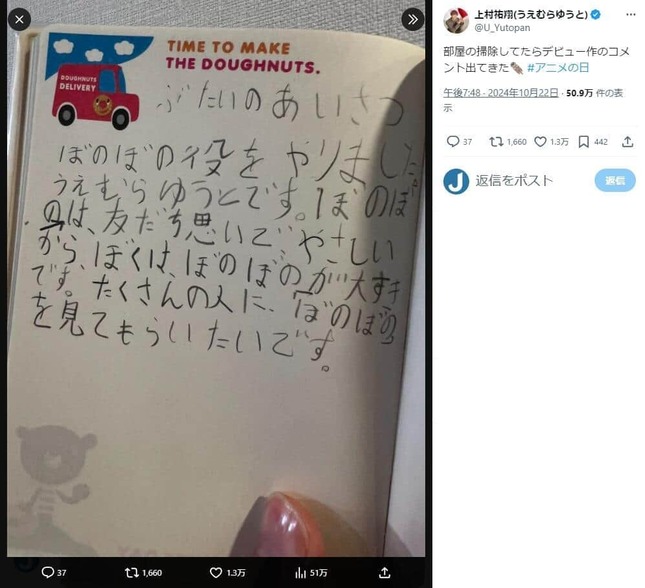 TIME TO MAKE
THE DOUGHNUTS.
DOUGHNUTS
DELIVERY
ぶたいのあいさつ
ぼのぼの役をやりました。
うえむらゆうとです。ぼのぼ
のは、友だち思いで、やさしい
から、ぼくは、ぼのぼのが大すき
です。たくさんの人に、ぼのぼの
を見てもらいたいです。
37
1,660
1.3万
51万
上村祐翔(うえむらゆうと)
@U_Yutopan
部屋の掃除してたらデビュー作のコメ
ント出てきた #アニメの日
午後7:48 · 2024年10月22日 · 50.9万 件の表
示
37
1,660
1.3万
442
J
返信をポスト
返信